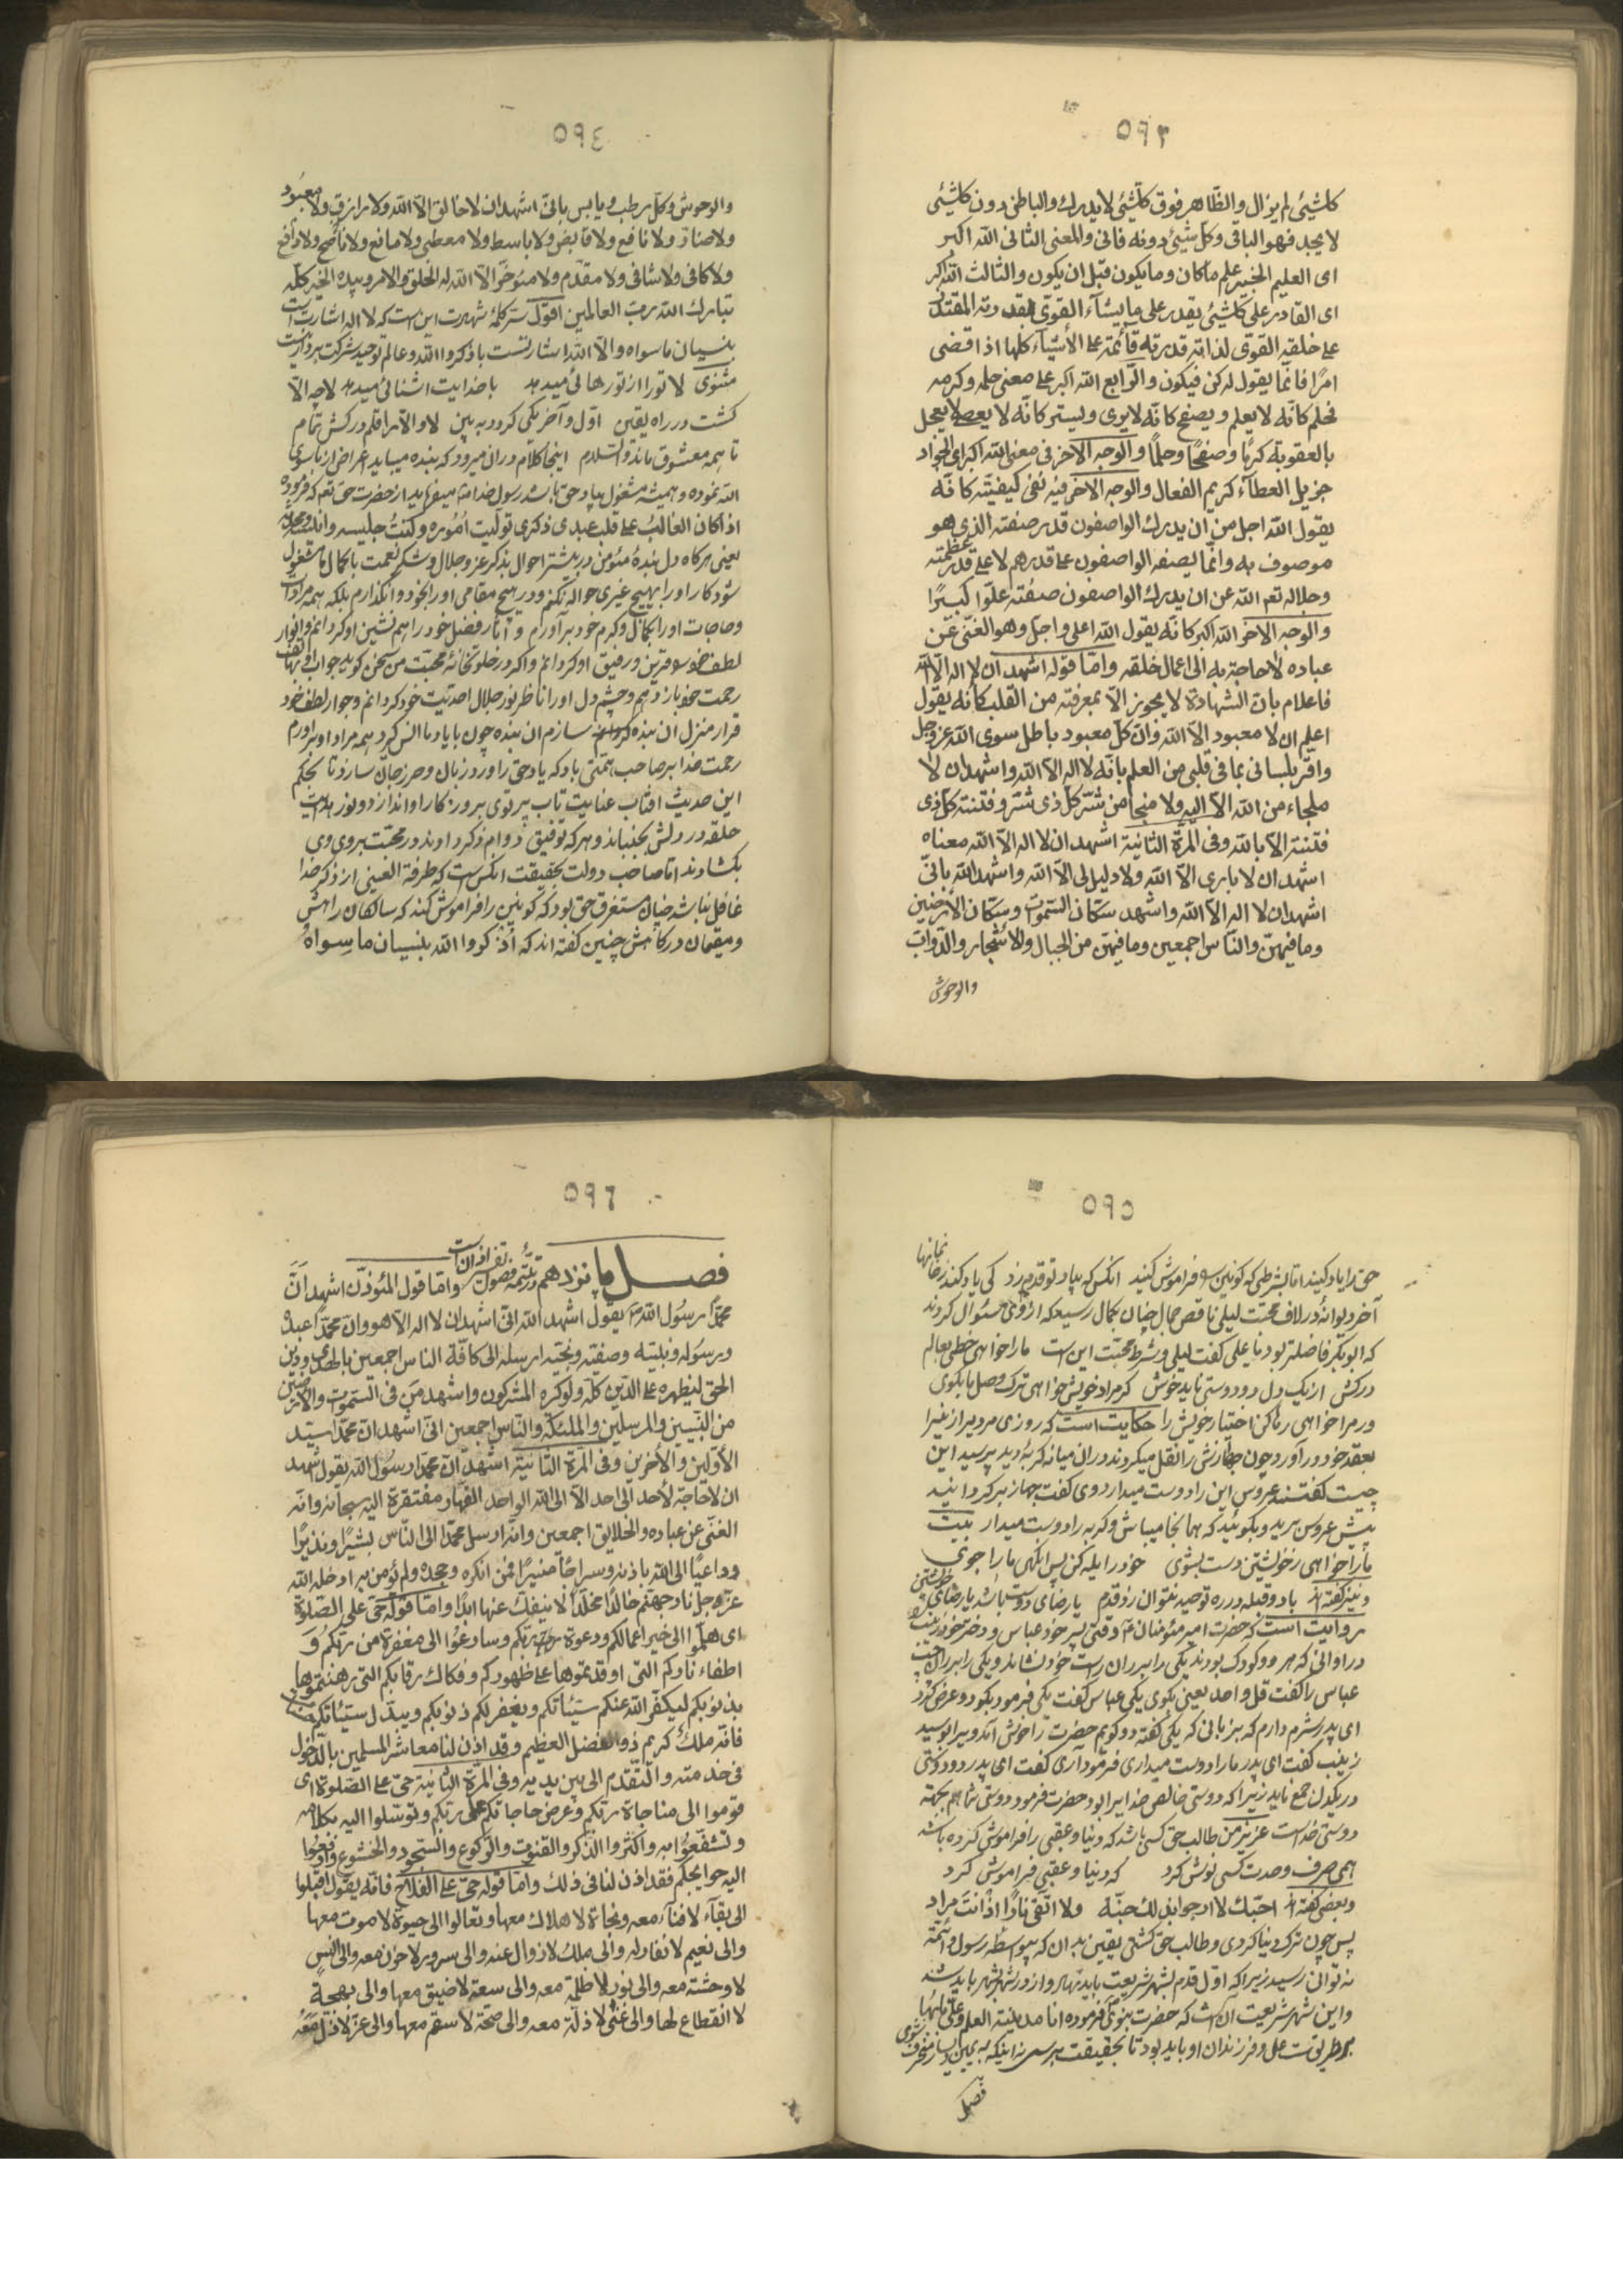 ٥٩٣
كلشیئی لم یزال والظاهر فوق كلشیئی لایدرك والباطن دون كلشیئی
لایجد فهو الباقی وكل شیئی دونه فانی والمعنی الثانی الله اكبر
ای العلیم الخبیر علم ماكان ومایكون قبل ان یكون والثالث الله اكبر
ای القادر علی كلشیئی یقدر علی مایشآء القوی لقدرته المقتدر
علی خلقه القوی لذاته قدرته قآئمة علی الأشیآء كلها اذا قضی
امرًا فانّما یقول له كن فیكون والرابع الله اكبر علی معنی حلمه وكرمه
یحلم كانّه لایعلم ویصفح كانّه لایری ویستر كانّه لایعصی لایعجل
بالعقوبة كرمًا وصفحًا وحلمًا والوجه الآخر فی معنی الله اكبر ای الجواد
جزیل العطآء كریم الفعال والوجه الآخر فیه نفی كیفیته كانّه
یقول الله اجل من ان یدرك الواصفون قدر صفته الذی هو
موصوف به وانّما یصفه الواصفون علی قدرهم لا علی قدر عظمته
وجلاله تعم الله عن ان یدرك الواصفون صفته علوًّا كبیرًا
والوجه الآخر الله اكبر كانّه یقول الله اعلی واجل وهو الغنی عن
عباده لاحاجة به الی اعمال خلقه وامّا قوله اشهد ان لا اله الا الله
فاعلام بانّ الشهادة لایجوز الاّ بمعرفته من القلب كانه یقول
اعلم ان لا معبود الاّ الله وانّ كلّ معبود باطل سوی الله عزوجل
واقرّ بلسانی بما فی قلبی من العلم بانّه لا اله الا الله واشهد ان لا
ملجاء من الله الاّ الیه ولا منجا من شرّ كلّ ذی شرّ وفتنة كلّ ذی
فتنة الاّ بالله وفی المرّة الثانیة اشهد ان لا اله الاّ الله معناه
اشهد ان لا باری الاّ الله ولا دلیل لی الاّ الله واشهد الله بانّی
اشهد ان لا اله الا الله واشهد سكان السموات وسكان الأرضین
وما فیهن والناس اجمعین وما فیهن من الجبال والأشجار والدّواب
والوحوش
٥٩٤
والوحوش وكل رطب ویابس بانّی اشهد ان لا خالق الاّ الله ولا رازق ولا معبود
ولا ضار ولا نافع ولا قابض ولا باسط ولا معطی ولا مانع ولا ناصح ولا دافع
ولا كافی ولا شافی ولا مقدّم ولا مؤخّر الاّ الله له الخلق والامر وبیده الخیر كلّه
تبارك الله ربّ العالمین اقول سرّ كلمهٔ شهادت این است كه لا اله اشارتست
بنسیان ماسواه والا الله اشارتست باذكروا الله وعالم توحید شركت بردار نیست
مثنوی لا تورا از تو رهائی میدهد باخدایت اشنائی میدهد لا چه الا
كشت در راه یقین اول وآخر یكی كردد ببین لا والاّ را قلم دركش تمام
تا همه معشوق ماند والسّلام اینجا كلام دران میرود كه بنده میباید اعراض از ماسوی
الله نموده وهمیشه مشغول بیاد حق باشد رسول خدا ص میفرماید از حضرت حق تعم كه فرموده
اذا كان الغالبُ علی قلب عبدی ذكری تولّیت اُمُوره وكنتُ جلیسه وانیسه
یعنی هركاه دل بندهٔ مؤمن در بیشتر احوال بذكر عزّ وجلال وشكر نعمت باكمال ما مشغول
شود كار اورا بهیچ غیری حواله نكنم ودر هیچ مقامی اورا بخود وانكذارم بلكه همه مرادات
وحاجات اورا بكمال وكرم خود برآورم و آثار فضل خود را همنشین او كردانم وانوار
لطف خود قرین ورفیق او كردانم واكر در خلوتخانهٔ محبّت من سخن كوید جواب
رحمت خود باز دهم وچشم دل اورا ناظر نور جلال احدیت خود كردانم وجوار لطف خود
قرار منزل ان بنده سازم ان بنده چون با یاد ما انس كیرد همه مراد او براورم
رحمت خدا بر صاحب همّتی باد كه یاد حق را ورد زبان وحرز جان سازد تا بحكم
این حدیث افتاب عنایت تاب پرتوی بر روزكار او اندازد ونور هدایت
حلقه در دلش بجنباند وهركه توفیق دوام ذكر داوند در محبّت بروی وی
بكشادند اما صاحب دولت بحقیقت انكس است كه طرفة العینی از ذكر خدا
غافل نباشد چنان مستغرق حق بود كه كونین را فراموش كند كه سالكان راهش
ومقیمان درگاهش چنین كفته اند كه اُذكروا الله بنسیان ماسِواهُ
٥٩٥
حق را یاد كنید اما بشرطی كه كونین فراموش كنید انكس كه بیاد تو قدم زد كی یاد كند
آخر دیوانهٔ در لاف محبّت لیلی ناقص جمال چنان بكمال رسید كه از وی سئوال كردند
كه ابوبكر فاضلتر بود یا علی كفت لیلی ودر شرط محبّت این است مارا خواهی خطی بعالم
دركش از یك دل دو دوستی ناید خوش كر مراد خویش خواهی ترك وصل ما بكوی
ور مرا خواهی رها كن اختیار خویش را حكایت است كه روزی مردی از
بعقد خود درآورد چون جهازش را نقل میكردند دران میانه كربهٔ دید پرسید این
چیست كفتند عروس این را دوست میدارد وی كفت جهاز بركردانید
پیش عروس برید وبكوئید كه همانجا میباش وكربه را دوست میدار بیت
مارا خواهی زخویشتن دست بشوی خود را یله كن پس انكهی مارا جوی
ونیز كفته اند با دو قبله در ره توحید نتوان زد قدم یا رضای دوست باشد یا رضای خویشتن
روایت است كه حضرت امیر مؤمنان ع وقتی پسر خود عباس ودختر خود زینب
در اوانی كه هر دو كودك بودند یكی را بر ران راست خود نشاند ویكی را بر ران چپ
عباس را كفت قل واحد یعنی بكوی یكی عباس كفت یكی فرمود بكو دو عرض كرد
ای پدر شرم دارم كه بزبانی كه یكی كفته دو كویم حضرت را خوش آمد ویرا بوسید
زینب كفت ای پدر مارا دوست میداری فرمود آری كفت ای پدر دو دوستی
در یكدل جمع نیاید زیرا كه دوستی خالص خدا یرا بود حضرت فرمود دوستی شما هم بجهة
دوستی خداست عزیز من طالب حق كسی باشد كه دنیا وعقبی را فراموش كرده باشد
می صرف وحدت كسی نوش كرد كه دنیا وعقبی فراموش كرد
وبعضی كفته اند احبّك لا ارجو بذلك جنّة ولا اتّقی نارًا اذْ انت مراد
پس چون ترك دنیا كردی وطالب حق كشتی یقین بدان كه بیواسطه رسول وائمّة
نتوانی رسید زیرا كه اوّل قدم بشهر شریعت باید نهاد واز در شهر بشهر باید شد
واین شهر شریعت آنست كه حضرت نبوی فرموده انا مدینة العلم وعلیّ بابُها
بر طریقت علی وفرزندان او باید بود تا بحقیقت برسی نه اینكه بیمین ویسار منحرف شوی
فصل
٥٩٦
فصل پانزدهم در تتمّهٔ فصول تفسیر اذان است وامّا قول المؤذّن اشهد انّ
محمّدًا رسُول الله ص یقول اشهد الله انّی اشهد ان لا اله الاّ هو وانّ محمّدًا عبدهُ
ورسُوله ونبیّه وصفیّه ونجیّه ارسله الی كافّة الناس اجمعین بالهدی ودین
الحق لیظهره علی الدّین كلّه ولو كره المشركون واشهد من فی السّموات والأرضین
من النّبیین والمرسلین والملئكة والنّاس اجمعین انّی اشهد انّ محمّدًا سیّد
الأوّلین والآخرین وفی المرّة الثانیة اشهد انّ محمّدًا رسُول الله یقول اشهد
ان لا حاجة لأحد الی احد الاّ الی الله الواحد القهّار مفتقرة الیه سبحانه وانّه
الغنی عن عباده والخلایق اجمعین وانّه ارسل محمّدًا الی النّاس بشیرًا ونذیرًا
وداعیًا الی الله باذنه وسراجًا منیرًا فمن انكره وجحده ولم یؤمن به ادخله الله
عزّوجل نار جهنّم خالدًا مخلّدًا لا ینفك عنها ابدًا وامّا قوله حیّ علی الصّلوة
ای هلمّوا الی خیر اعمالكم ودعوة ربّكم وسارعُوا الی مغفرة من ربّكم و
اطفاء ناركم التی اوقدتموها علی ظهوركم وفكاك رقابكم التی رهنتموها
بذنوبكم لیكفّر الله عنكم سیّئاتكم ویغفر لكم ذنوبكم ویبدّل سیّئاتكم حسنات
فانّه ملك كریم ذو الفضل العظیم وقد اذن لنا معاشر المسلمین بالدّخول
فی خدمته والتّقدّم الی بین یدیه وفی المرّة الثانیة حیّ علی الصّلوة ای
قوموا الی مناجاة ربّكم وعرض حاجاتكم علی ربّكم وتوسّلوا الیه بكلامه
وتشفّعوا به واكثروا الذّكر والقنوت والرّكوع والسّجود والخشوع وارفعوا
الیه حوایجكم فقد اذن لنا فی ذلك وامّا قوله حیّ علی الفلاح فانّه یقول اقبلوا
الی بقآء لا فنآء معه ونجاة لا هلاك معها وتعالوا الی حیوة لا موت معها
والی نعیم لا نفاد له والی ملك لا زوال عنه والی سرور لا حزن معه والی انس
لا وحشة معه والی نور لا ظلمة معه والی سعة لا ضیق معها والی بهجة
لا انقطاع لها والی غنی لا ذلّة معه والی صحّة لا سقم معها والی عزّ لا ذلّ معه